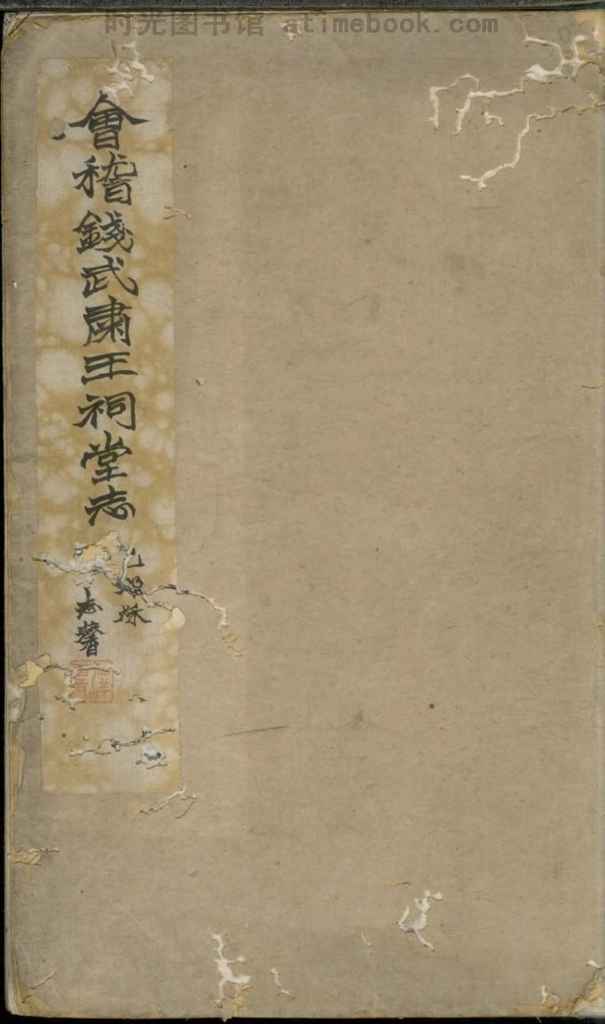 时光图书馆 atimebook.com
會稽錢武肅王祠堂志
志馨